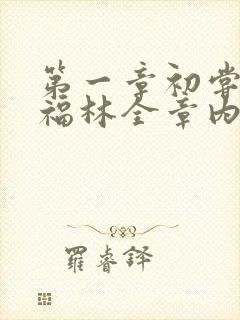 第一章初尝
福林全章内
羅睿铎